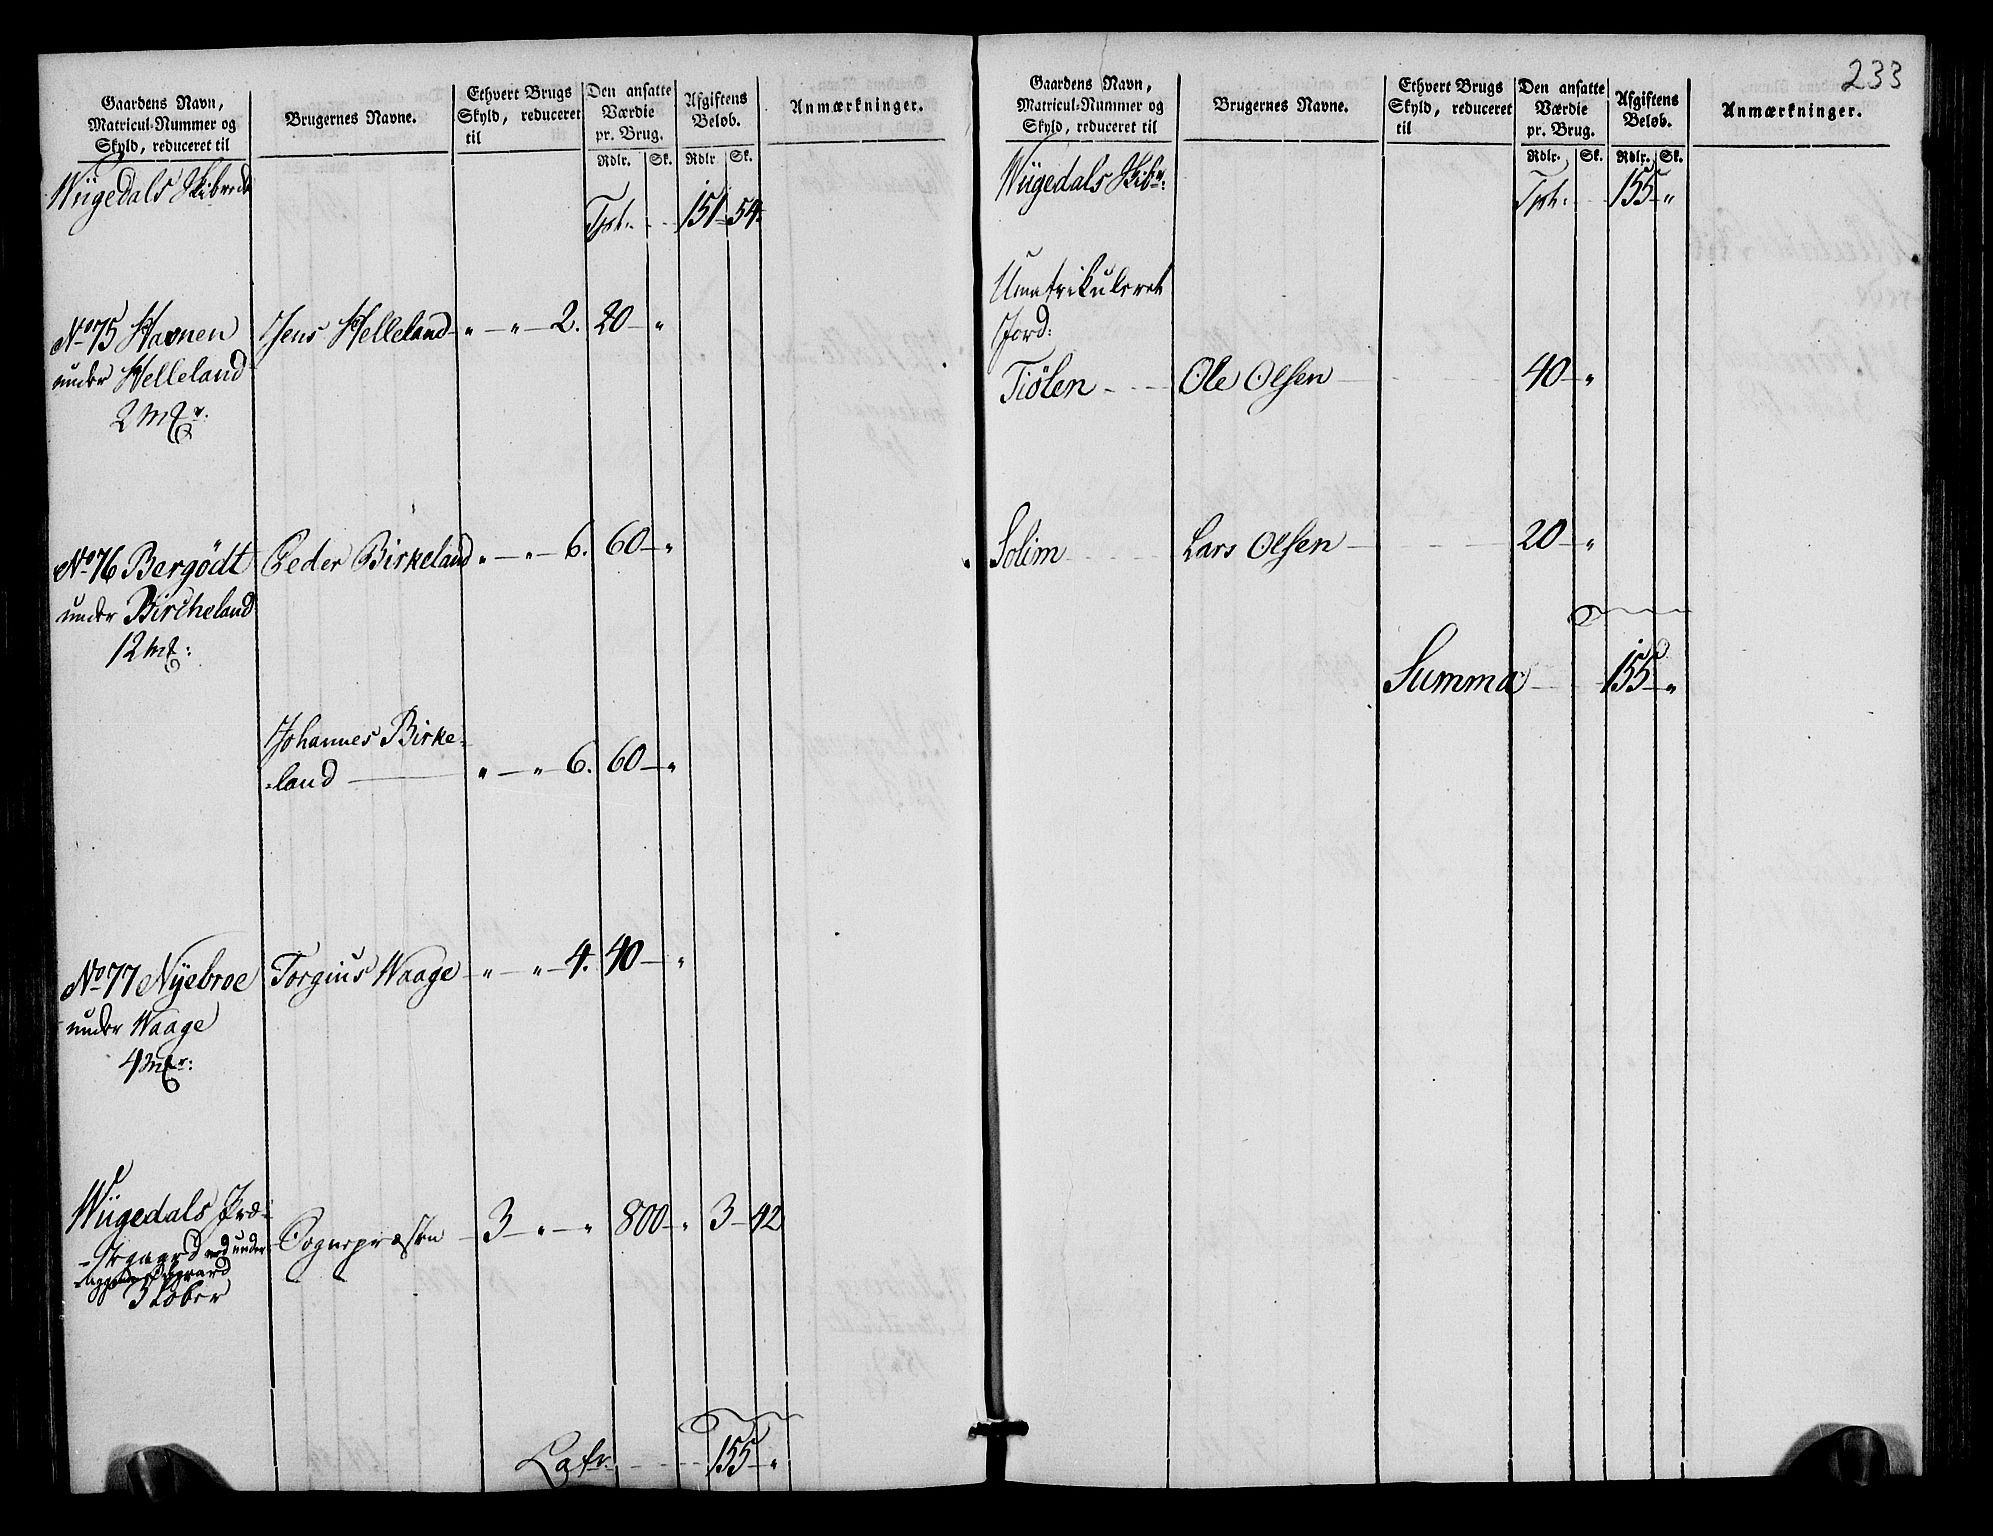 Gaardens Navn,
Matricul-Nummer og
Skyld, reduceret til
Brugernes Navne.
Ethvert Brugs
Skyld, reduceret
til
Den ansatte
Værdie
pr. Brug.
Rdlr. Sk.
Afgiftens
Beløb.
Rdlr Sk.
Anmærkninger.
Wiigedals Skibrede
Tpt: 151 54.
No 75 Havnen Jens Helleland " " 2. 20 "
under Helleland
2 mkr:
No 76 Bergødt Peder Birkeland " " 6. 60 "
under Bircheland
12 mk:
Johannes Birke-
-land " " 6. 60 "
No 77 Nyebroe Torgius Waage " " 4. 40 "
under Waage
4 mkr:
Wiigedals Præ-
-stegaard med under- Sognepræsten 3 " " 800 " 3 42
-liggende Ødegaard
3 Løber
Latr. 155 "
233
Gaardens Navn,
Matricul-Nummer og
Skyld, reduceret til
Brugernes Navne.
Ethvert Brugs
Skyld, reduceret
til
Den ansatte
Værdie
pr. Brug.
Rdlr. Sk.
Afgiftens
Beløb.
Rdlr. Sk.
Anmærkninger.
Wiigedals Skibr:
Tpt: 155 "
Umatrikuleret
Jord:
Tiølen Ole Olsen 40 "
Solim Lars Olsen 20 "
Summa 155 "